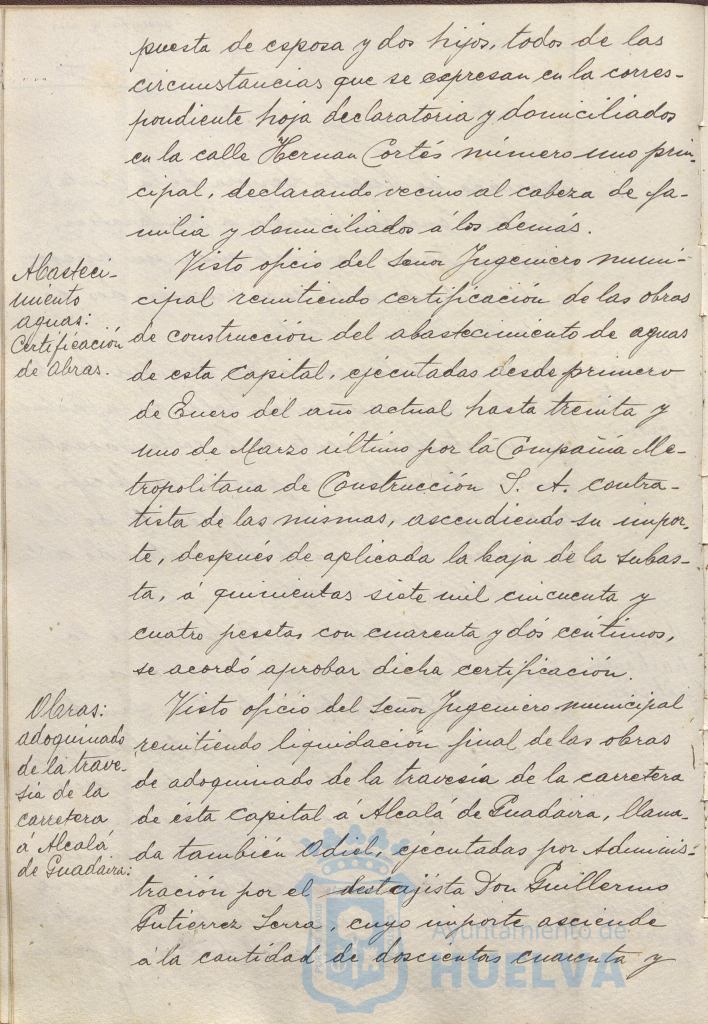 puesta de esposa y dos hijos, todos de las
circunstancias que se expresan en la corres-
pondiente hoja declaratoria y domiciliados
en la calle Hernan Cortés número uno prin-
cipal, declarando vecino al cabeza de fa-
milia y domiciliados á los demás.
Abasteci-
miento
aguas:
Certificación
de obras.
Visto oficio del Señor Ingeniero muni-
cipal remitiendo certificación de las obras
de construcción del abastecimiento de aguas
de esta Capital, ejecutadas desde primero
de Enero del año actual hasta treinta y
uno de Marzo último por la Compañía Me-
tropolitana de Construcción S. A. contra-
tista de las mismas, ascendiendo su impor-
te, después de aplicada la baja de la subas-
ta, á quinientas siete mil cincuenta y
cuatro pesetas con cuarenta y dós céntimos,
se acordó aprobar dicha certificación.
Obras:
adoquinado
de la trave-
sía de la
carretera
á Alcalá
de Guadaira:
Visto oficio del Señor Ingeniero municipal
remitiendo liquidación final de las obras
de adoquinado de la travesía de la carretera
de ésta Capital á Alcalá de Guadaira, llama-
da también Odiel, ejecutadas por Adminis-
tración por el destajista Don Guillermo
Gutierrez Serra, cuyo importe asciende
á la cantidad de doscientas cuarenta y
Ayuntamiento de
HUELVA